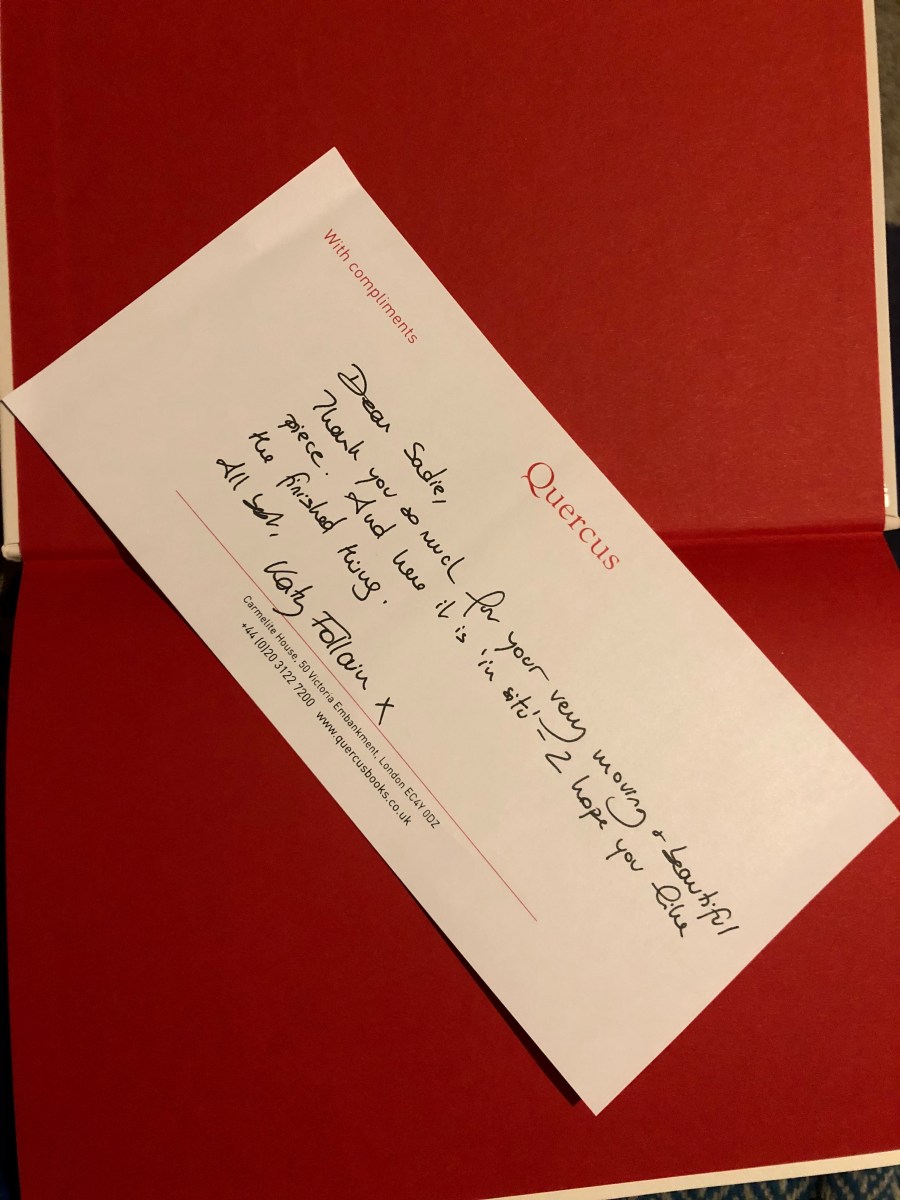 With compliments
Quercus
Dear Sadie,
Thank you so much for your very moving + beautiful
piece. And here it is 'in situ' – I hope you like
the finished thing.
All best, Katy Follain x
Carmelite House, 50 Victoria Embankment, London EC4Y 0DZ
+44 (0)20 3122 7200 www.quercusbooks.co.uk